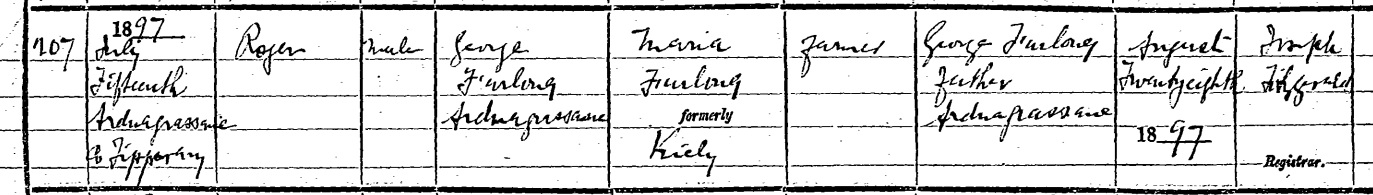 207
1897
July
Fifteenth
Ardnagrassane
Tipperary
Roger
Male
George
Furlong
Ardnagrassane
Maria
Furlong
formerly
Kiely
Farmer
George Furlong
Father
Ardnagrassane
August
Twentyeighth
1897
Joseph
Fitzgerald
Registrar.